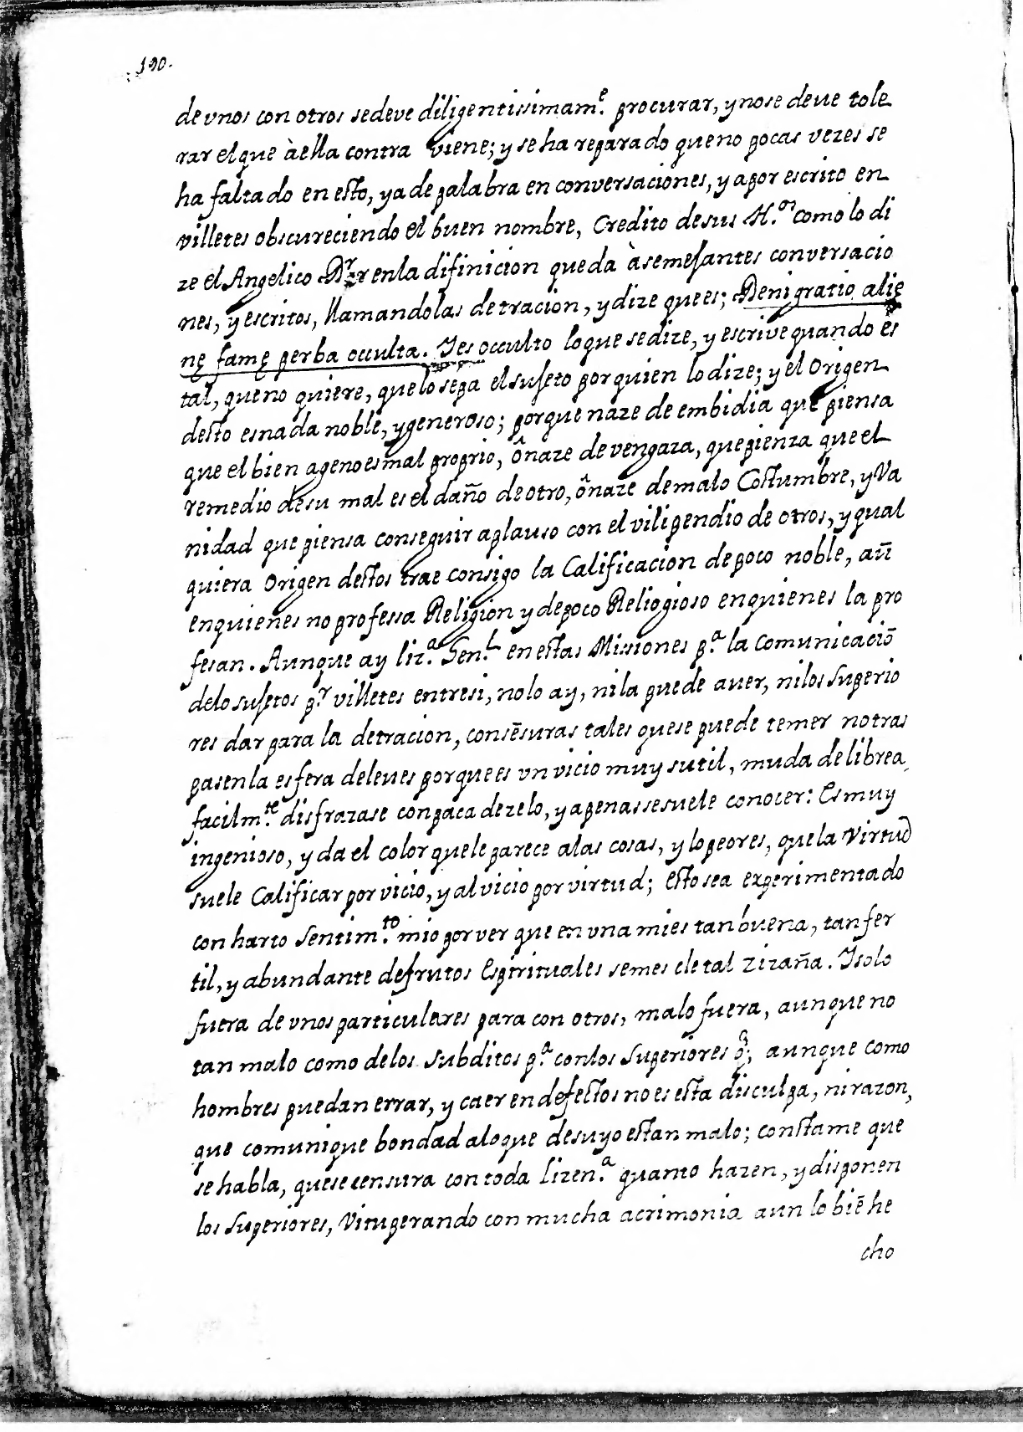 190.
de vnos con otros se deve diligentissimam.e procurar, y no se deue tole
rar el que à ella contra viene; y se ha reparado que no pocas vezes se
ha faltado en esto, ya de palabra en conversaciones, y a por escrito en
villetes obscureciendo el buen nombre, Credito de sus H.os como lo di
ze el Angelico Dr. en la difinicion que da à semejantes conversacio
nes, y escritos, llamandolas detracion, y dize que es; Denigratio alie
nę famę perba occulta. Y es occulto lo que se dize, y escrive quando es
tal, que no quiere, que lo sepa el sujeto por quien lo dize; y el Origen
desto es nada noble, y generoso; porque naze de embidia que piensa
que el bien ageno es mal proprio, ô naze de vengaza, que pienza que el
remedio de su mal es el daño de otro, ô naze de malo Costumbre, y Va
nidad que piensa conseguir aplauso con el vilipendio de otros, y qual
quiera Origen destos trae consigo la Calificacion de poco noble, aũ
en quienes no professa Religion y de poco Reliogioso en quienes la pro
fesan. Aunque ay liz.a Gen.l en estas Missiones p.a la Comunicaciõ
de lo sujetos p.r villetes entre si, no lo ay, ni la puede auer, ni los Superio
res dar para la detracion, consẽsuras tales que se puede temer no tras
pasen la esfera de leues porque es vn vicio muy sutil, muda de librea,
facilm.te disfrazase con paca de zelo, y apenas se suele conocer: Es muy
ingenioso, y da el color que le parece a las cosas, y lo peor es, que la Virtud
suele Calificar por vicio, y al vicio por virtud; esto sea experimentado
con harto Sentim.to mio por ver que en vna mies tan buena, tan fer
til, y abundante de frutos Espirituales semescle tal Zizaña. Y solo
fuera de vnos particulares para con otros, malo fuera, aunque no
tan malo como de los subditos p.a con los Superiores q̃; aunque como
hombres puedan errar, y caer en defectos no es esta disculpa, ni razon,
que comunique bondad a lo que de suyo es tan malo; constame que
se habla, que se censura con toda lizen.a quanto hazen, y disponen
los Superiores, Vituperando con mucha acrimonia aun lo biẽ he
cho